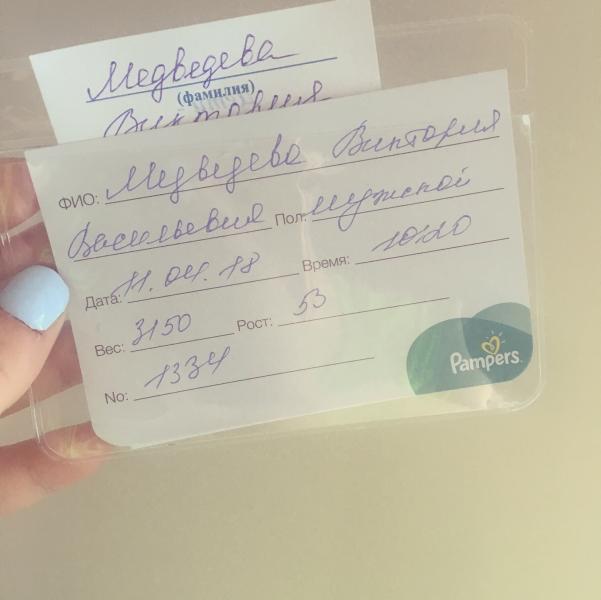 Медведева
(фамилия)
Виктория
ФИО: Медведева Виктория
Васильевна Пол: мужской
Дата: 11.04.18 Время: 10:20
Вес: 3150 Рост: 53
No: 1334
Pampers